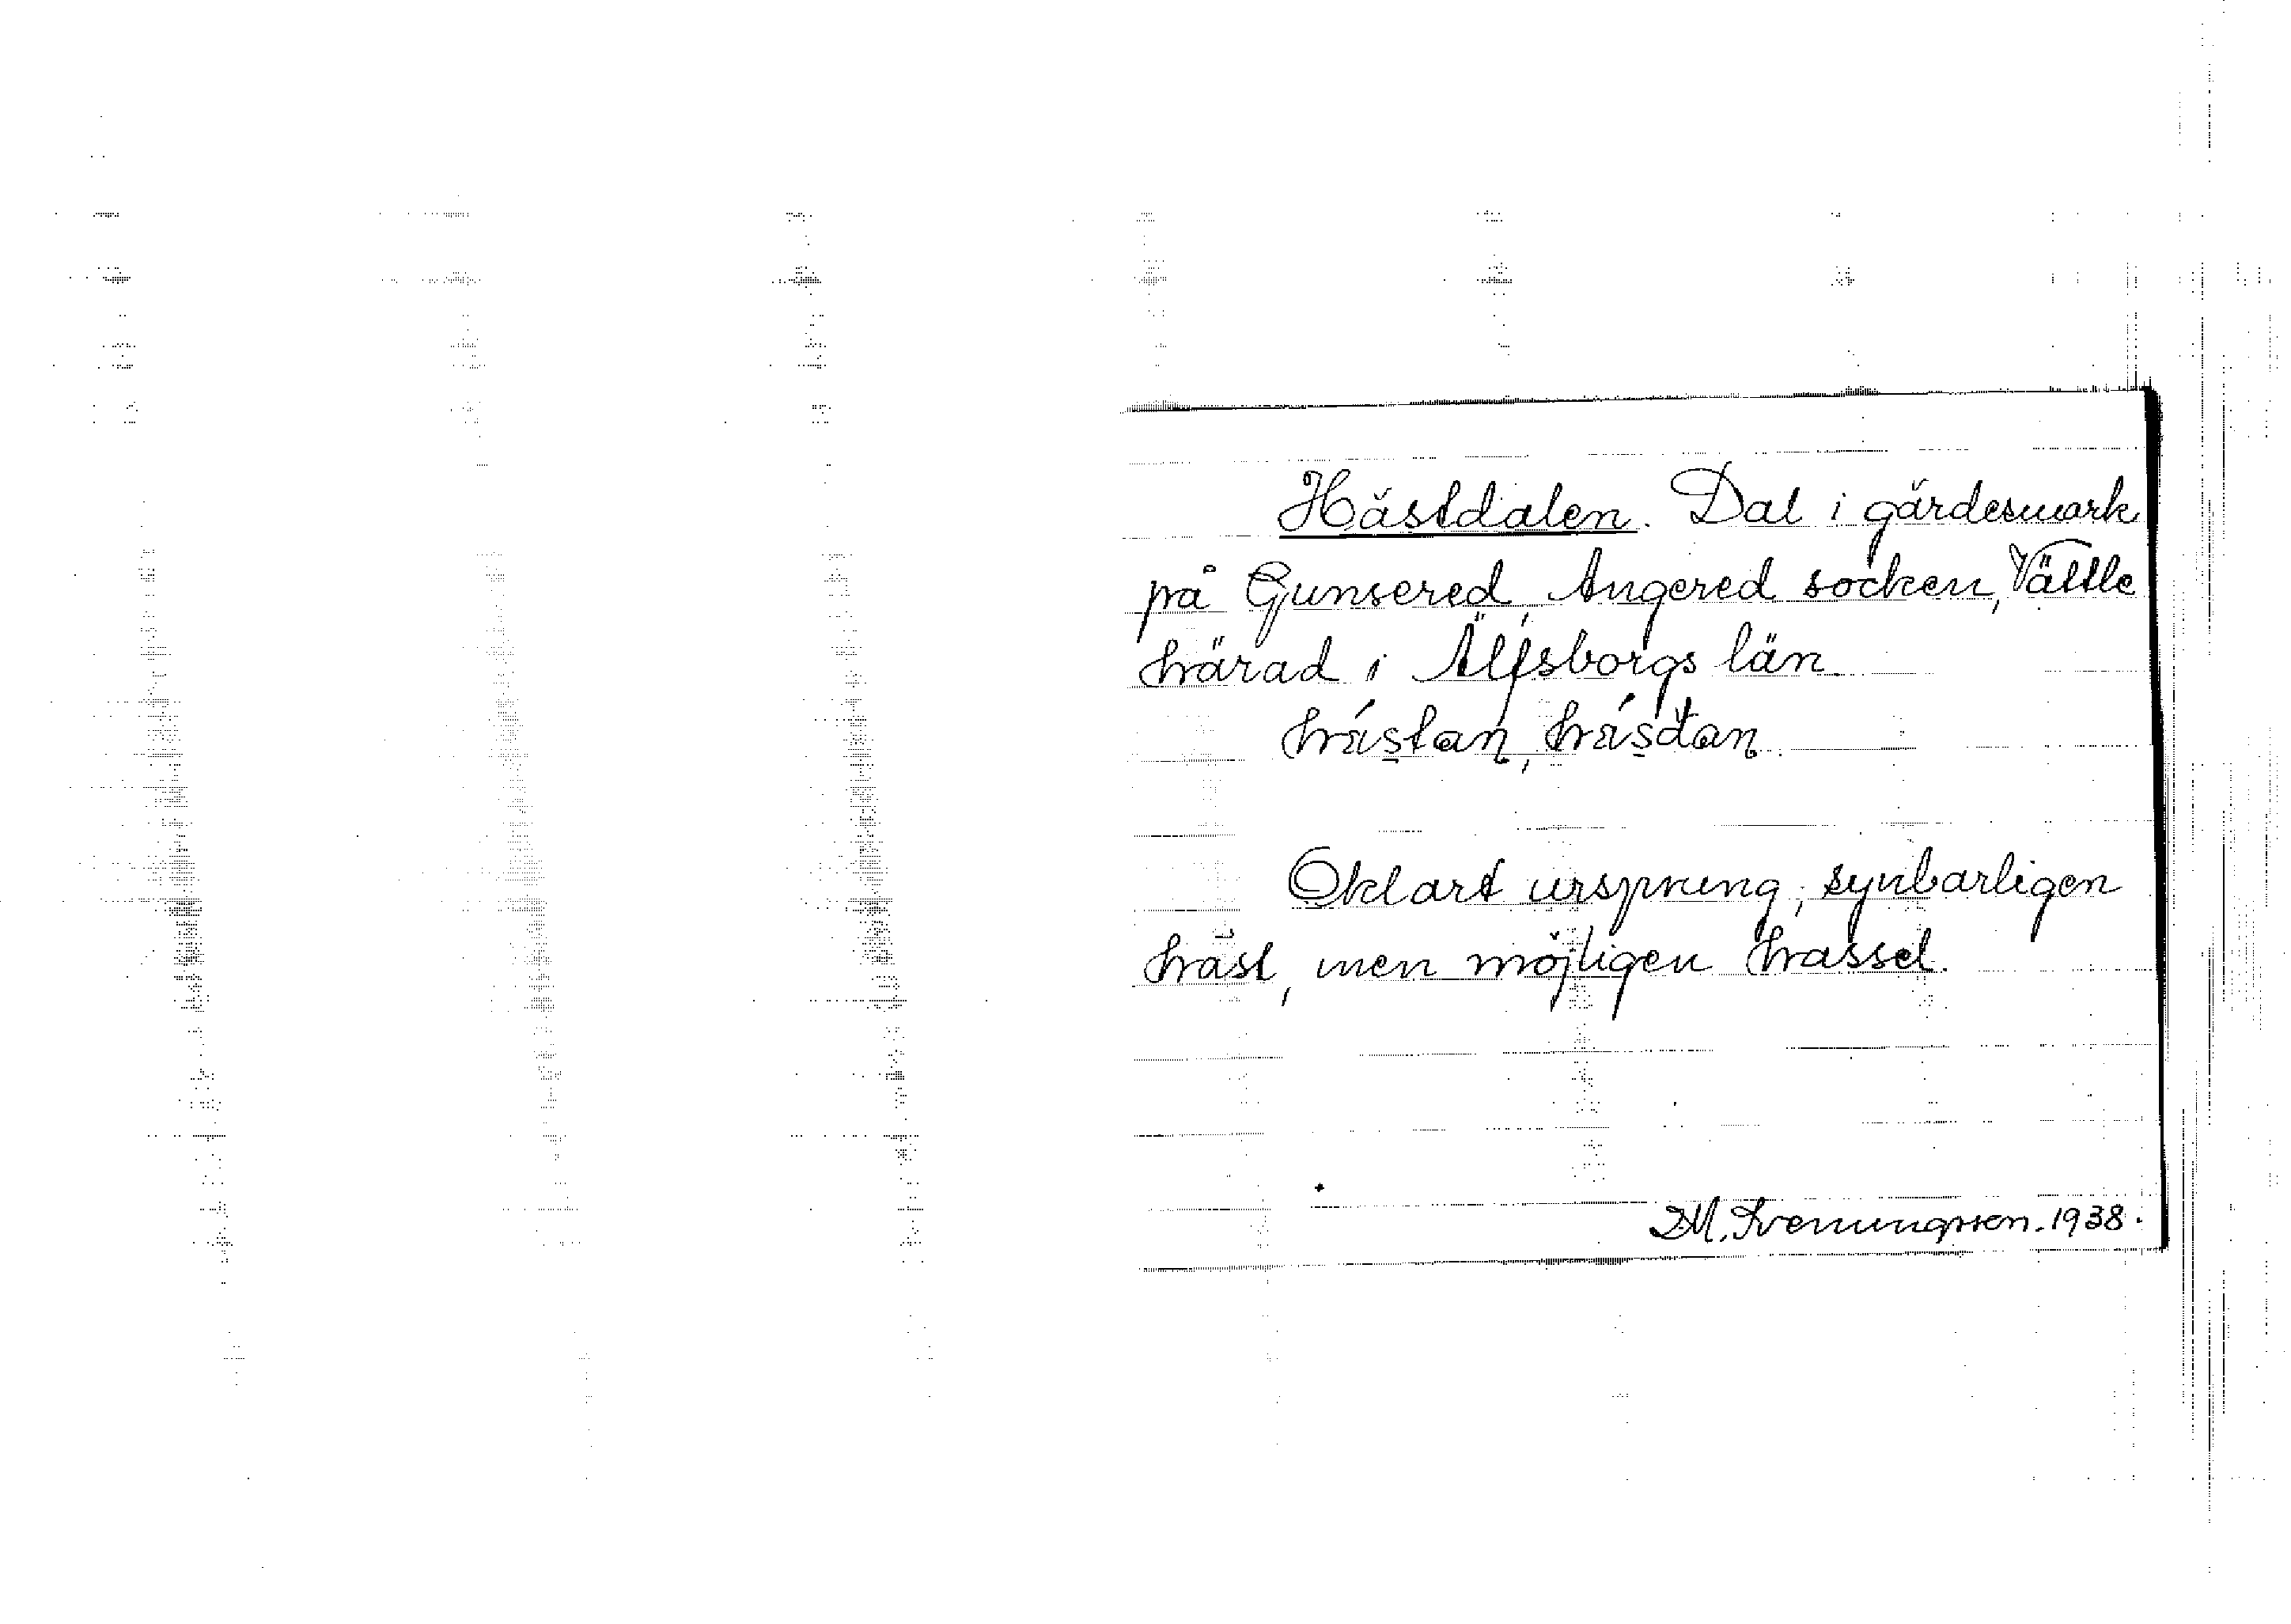 Hästdalen. Dal i gärdesmark
på Gunsered, Angered socken, Vättle
härad i Älfsborgs län.
Oklart ursprung, synbarligen
häst, men möjligen hassel.
D.M. Svenningsson. 1938.